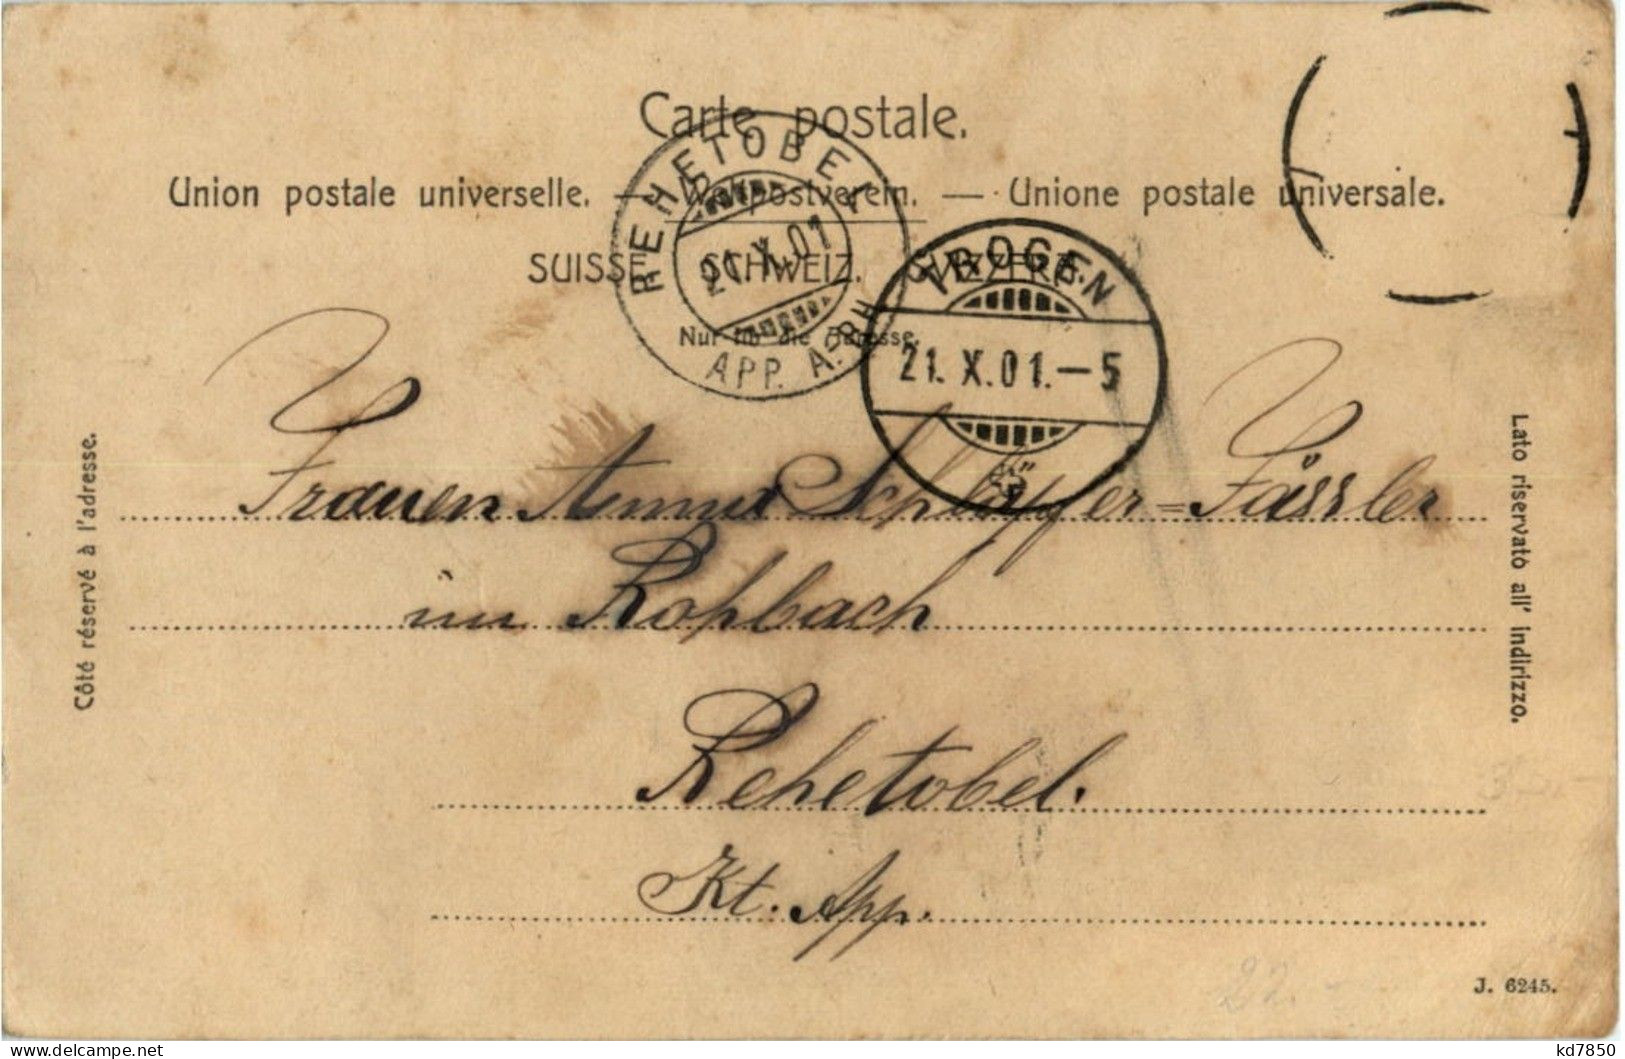 Carte postale.
Union postale universelle. — Weltpostverein. — Unione postale universale.
SUISSE. SCHWEIZ. SVIZZERA.
Nur für die Adresse.
REHETOBEL
21.X.01
APP. A. RH.
TROGEN
21.X.01.–5
Côté réservé à l'adresse.
Lato riservato all' indirizzo.
Frauen Anna Schläpfer=Fässler
im Rohbach
Rehetobel.
Kt. App.
22.-
J. 6245.
delcampe.net
kd7850